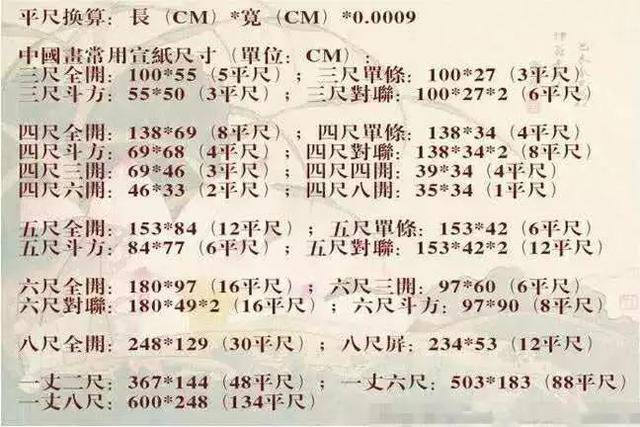 平尺換算：長（CM）*寬（CM）*0.0009
中國畫常用宣紙尺寸（單位：CM）：
三尺全開：100*55（5平尺）；三尺單條：100*27（3平尺）
三尺斗方：55*50（3平尺）；三尺對聯：100*27*2（6平尺）
四尺全開：138*69（8平尺）；四尺單條：138*34（4平尺）
四尺斗方：69*68（4平尺）；四尺對聯：138*34*2（8平尺）
四尺三開：69*46（3平尺）；四尺四開：39*34（4平尺）
四尺六開：46*33（2平尺）；四尺八開：35*34（1平尺）
五尺全開：153*84（12平尺）；五尺單條：153*42（6平尺）
五尺斗方：84*77（6平尺）；五尺對聯：153*42*2（12平尺）
六尺全開：180*97（16平尺）；六尺三開：97*60（6平尺）
六尺對聯：180*49*2（16平尺）；六尺斗方：97*90（8平尺）
八尺全開：248*129（30平尺）；八尺屏：234*53（12平尺）
一丈二尺：367*144（48平尺）；一丈六尺：503*183（88平尺）
一丈八尺：600*248（134平尺）